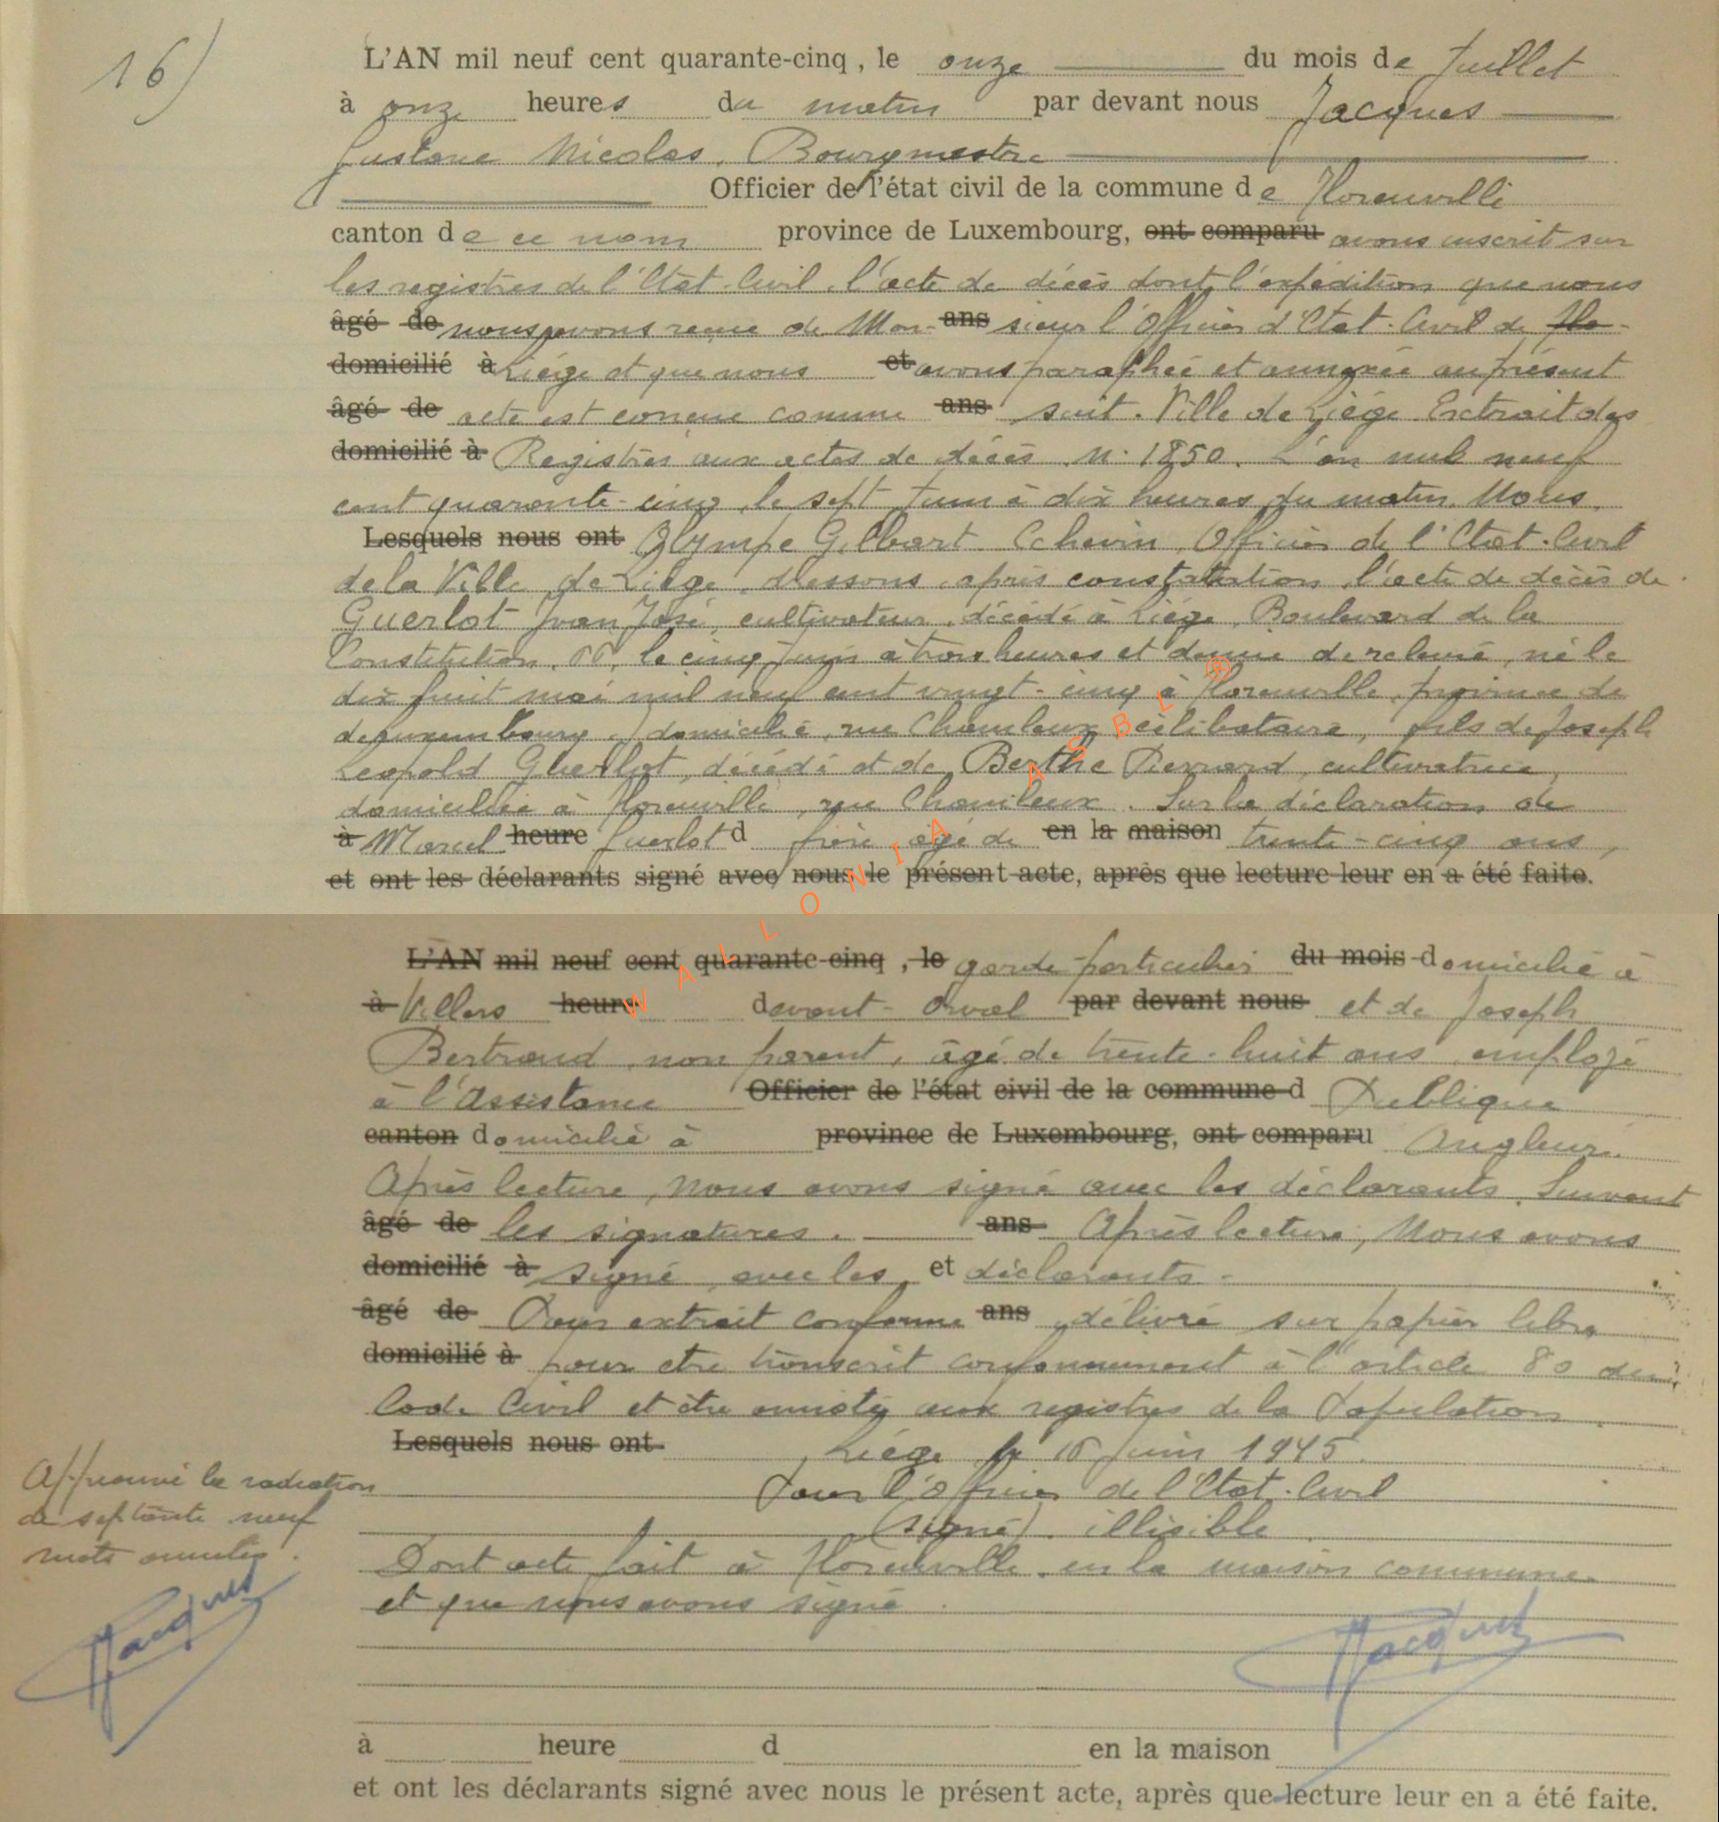 16)
L'AN mil neuf cent quarante-cinq, le onze du mois de Juillet
à onze heures du matin par devant nous Jacques
Gustave Nicolas, Bourgmestre
Officier de l'état civil de la commune de Florenville
canton de ce nom province de Luxembourg, ont comparu avons inscrit sur
les registres de l'Etat-Civil, l'acte de décès dont l'expédition que nous
âgé de nous avons reçue de Mon- ans sieur l'Officier d'Etat-Civil de Flo-
domicilié à Liège et que nous et avons paraphée et annexée au présent
âgé de acte est conçue comme ans suit. Ville de Liège Extrait des
domicilié à Registres aux actes de décès N° 1850. L'an mil neuf
cent quarante-cinq, le sept Juin à dix heures du matin, Nous,
Lesquels nous ont Olympe Gilbart Echevin, Officier de l'Etat-Civil
de la Ville de Liège, dressons après constatation, l'acte de décès de
Guerlot Jvan José, cultivateur, décédé à Liège, Boulevard de la
Constitution, 66, le cinq Juin à trois heures et demie de relevée, né le
dix huit mai mil neuf cent vingt-cinq à Florenville, province de
de Luxembourg, domicilié, rue Chamleux, célibataire, fils de Joseph
Léopold Guerlot, décédé et de Berthe Pierrard, cultivatrice,
domiciliée à Florenville, rue Chamleux. Sur la déclaration de
à Marcel heure Guerlot d frère âgé de en la maison trente-cinq ans,
et ont les déclarants signé avec nous le présent acte, après que lecture leur en a été faite.
WALLONIA ASBL ®
L'AN mil neuf cent quarante-cinq, le garde-particulier du mois domicilié à
à Villers heure devant-Orval par devant nous et de Joseph
Bertrand, non parent, âgé de trente-huit ans, employé
à l'Assistance Officier de l'état civil de la commune d Publique
canton domicilié à province de Luxembourg, ont comparu Angleur.
Après lecture, Nous avons signé avec les déclarants. Suivent
âgé de les signatures. ans Après lecture, Nous avons
domicilié à signé avec les et déclarants.
âgé de Pour extrait conforme ans délivré sur papier libre
domicilié à pour être transcrit conformément à l'article 80 du
Code Civil et être annoté aux registres de la Population
Lesquels nous ont Liège le 16 Juin 1945.
Pour l'Officier de l'Etat-Civil
(signé). illisible
Dont acte fait à Florenville en la maison commune
et que nous avons signé.
Approuvé la radiation
de septante neuf
mots annulés.
Jacques
Jacques
à heure d en la maison
et ont les déclarants signé avec nous le présent acte, après que lecture leur en a été faite.